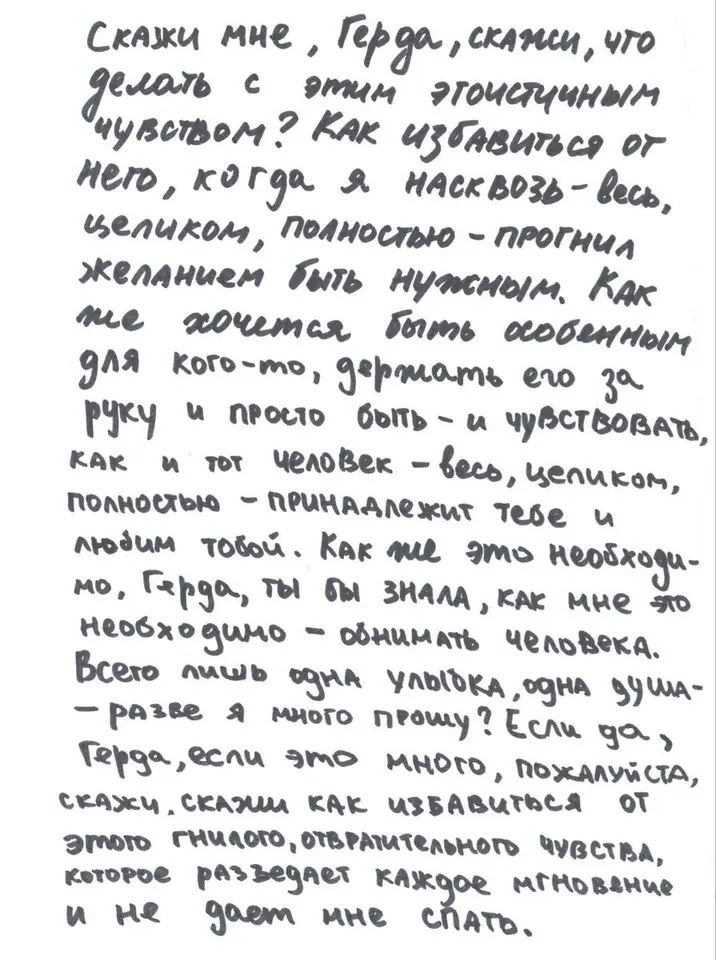 Скажи мне, Герда, скажи, что
делать с этим эгоистичным
чувством? Как избавиться от
него, когда я насквозь – весь,
целиком, полностью – прогнил
желанием быть нужным. Как
же хочется быть особенным
для кого-то, держать его за
руку и просто быть – и чувствовать,
как и тот человек – весь, целиком,
полностью – принадлежит тебе и
любим тобой. Как же это необходи-
мо, Герда, ты бы знала, как мне это
необходимо – обнимать человека.
Всего лишь одна улыбка, одна душа-
– разве я много прошу? Если да,
Герда, если это много, пожалуйста,
скажи, скажи как избавиться от
этого гнилого, отвратительного чувства,
которое разъедает каждое мгновение
и не дает мне спать.